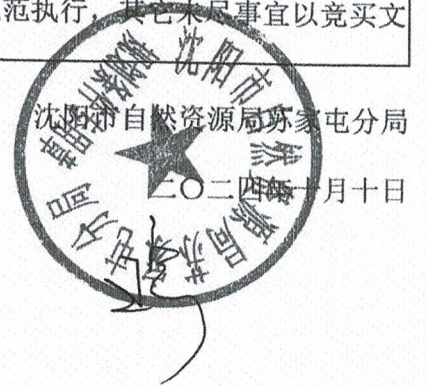 范执行，其它未尽事宜以竞买文
沈阳市自然资源局苏家屯分局
二〇二四年十月十日
沈阳市自然资源局苏家屯分局